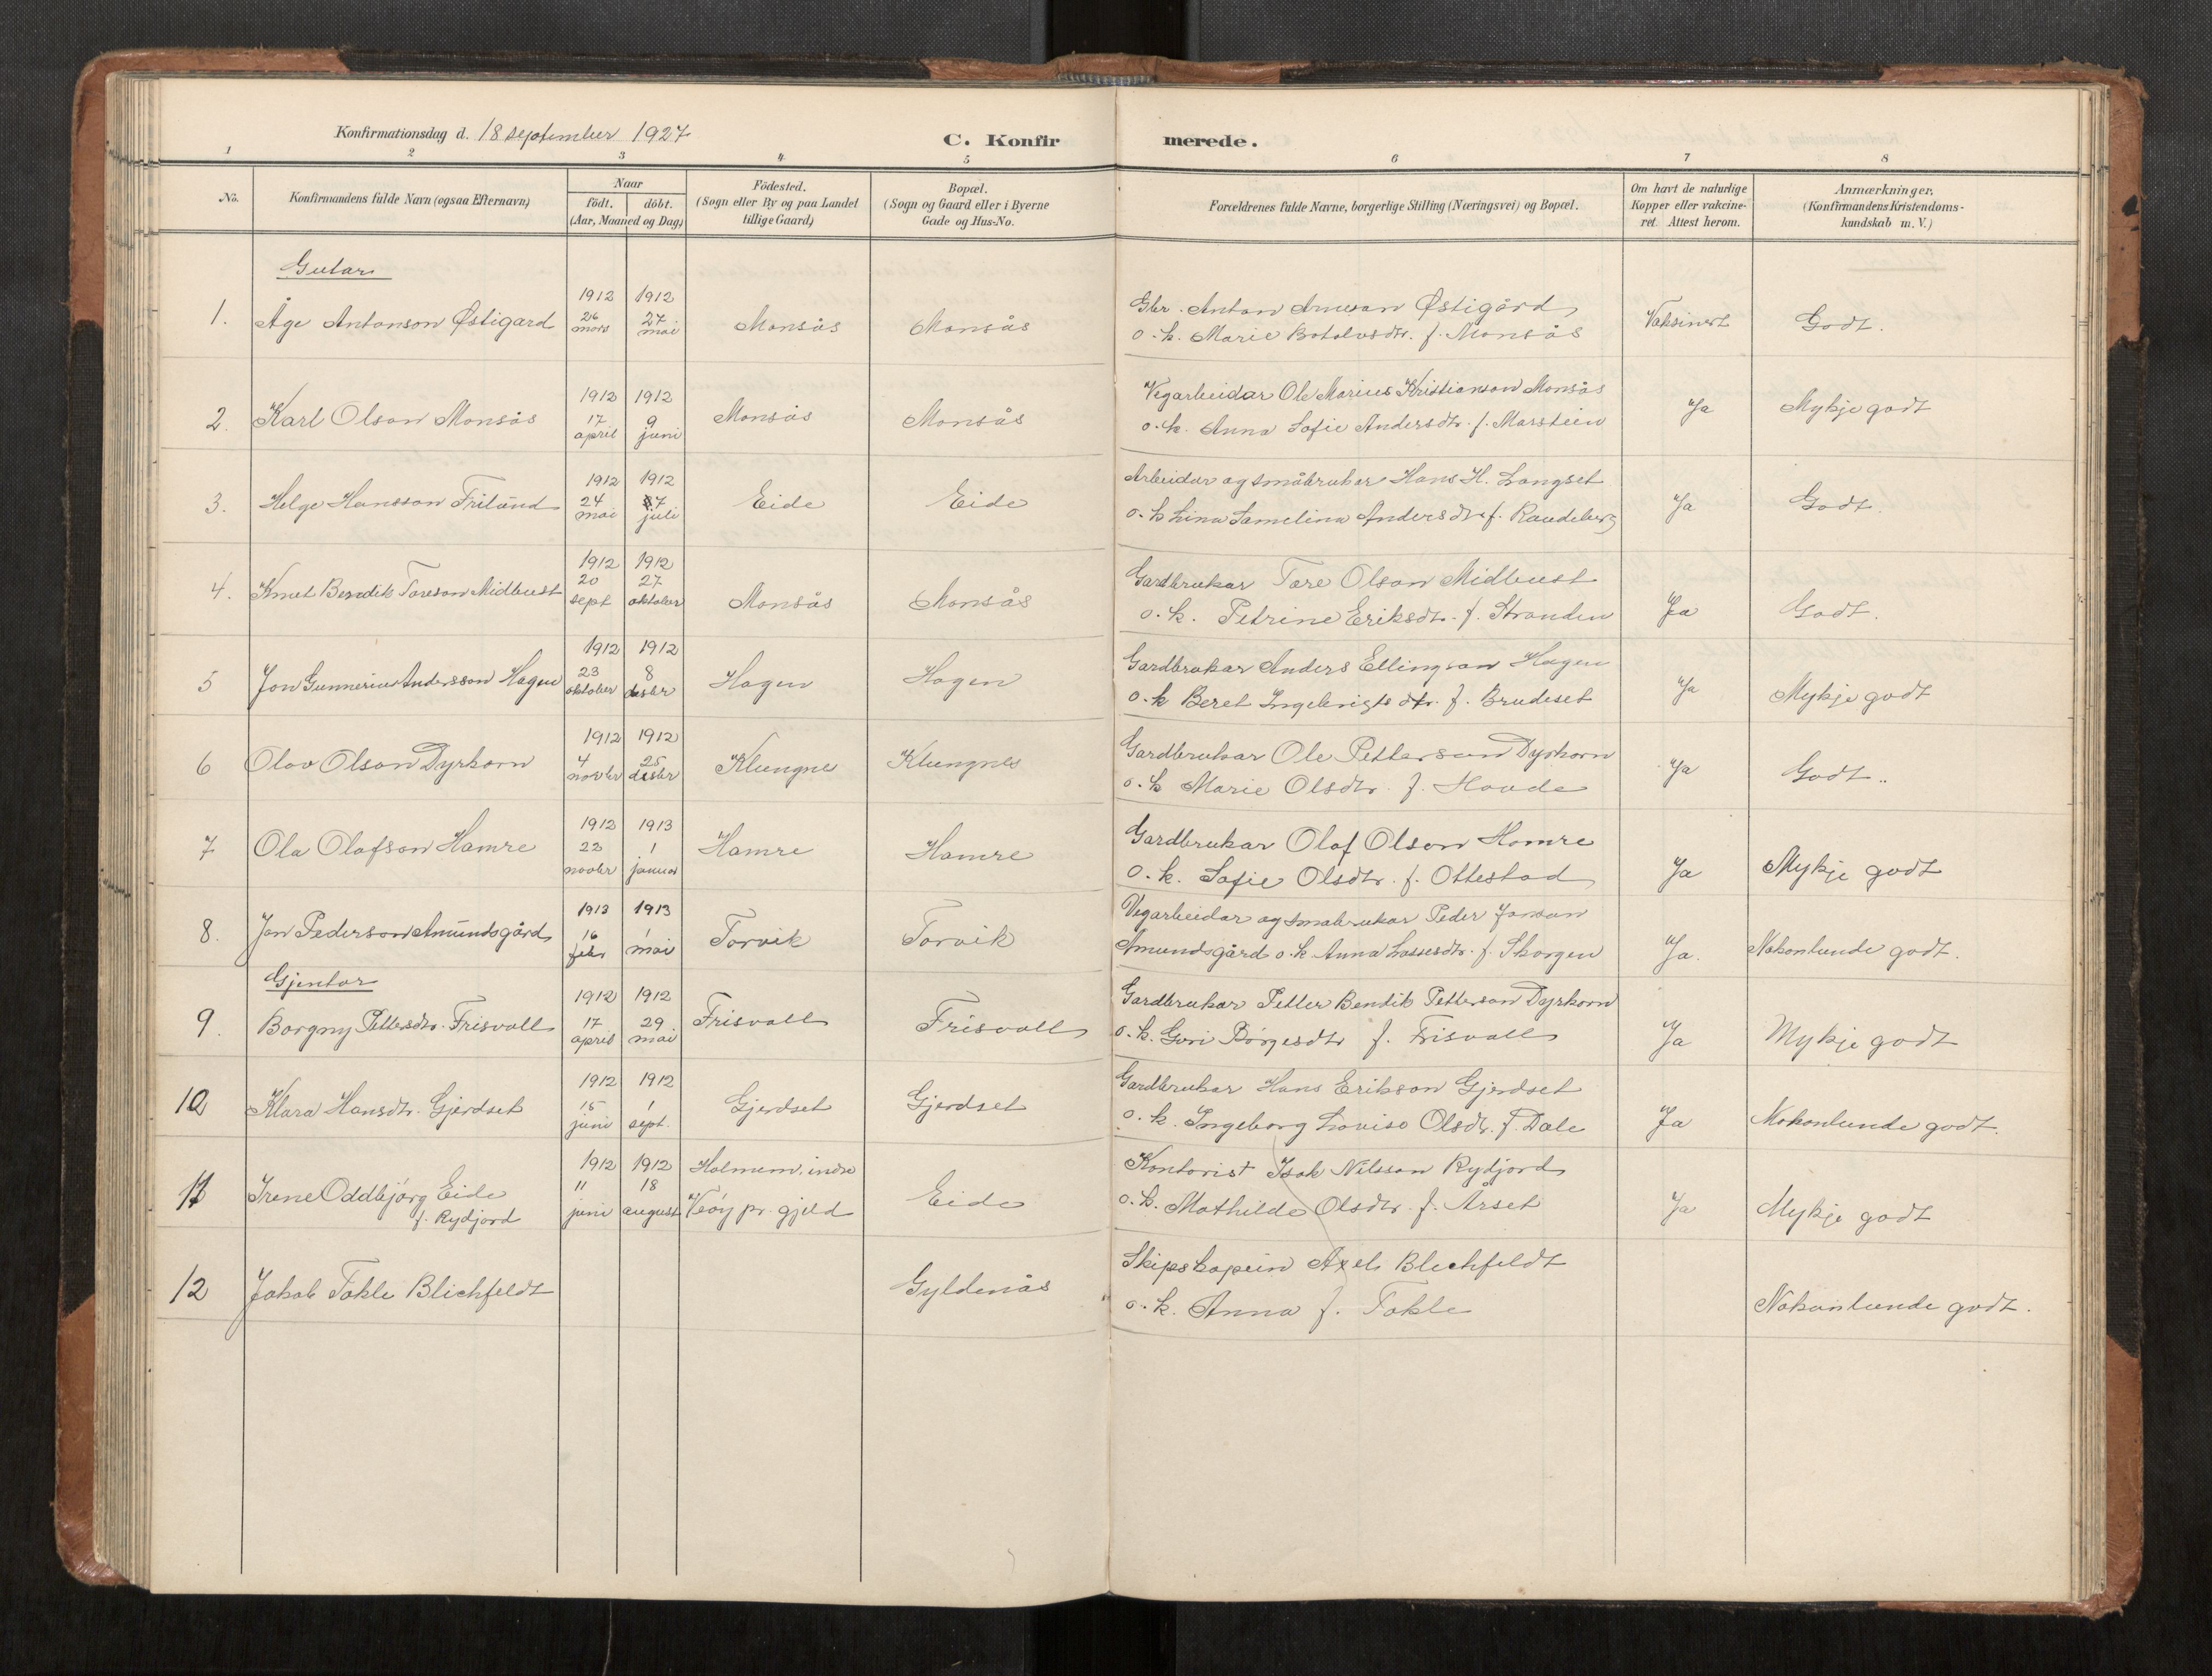 Konfirmationsdag d. 18 september 1927
C. Konfirmerede.
1 2 3 4 5 6 7 8
No. Konfirmandens fulde Navn (ogsaa Efternavn) Naar födt. döbt. (Aar, Maaned og Dag) Födested. (Sogn eller By og paa Landet tillige Gaard) Bopæl. (Sogn og Gaard eller i Byerne Gade og Hus-No. Forældrenes fulde Navne, borgerlige Stilling (Næringsvei) og Bopæl. Om havt de naturlige Kopper eller vakcineret. Attest herom. Anmærkninger. (Konfirmandens Kristendomskundskab m. V.)
Gutar
1. Åge Antonson Østigard 1912 26 mars 1912 27 mai Monsås Monsås Gbr. Anton Arneson Østigård
o. k. Marie Botolvsdtr. f. Monsås Vaksinert Godt.
2. Karl Olson Monsås 1912 17 april 1912 9 juni Monsås Monsås Vegarbeidar Ole Marius Kristianson Monsås
o. k. Anna Sofie Andersdtr. f. Marstein Ja Mykje godt
3. Helge Hansson Frilund 1912 24 mai 1912 7 juli Eide Eide Arbeidar og småbrukar Hans H. Langset
o. k Lina Samelina Andersdtr f. Raudeberg Ja Godt
4. Knut Bendik Toreson Midbust 1912 20 sept 1912 27 oktober Monsås Monsås Gardbrukar Tore Olson Midbust
o. k. Petrine Eriksdtr. f. Stranden Ja Godt.
5 Jon Gunnerius Andersson Hagen 1912 23 oktober 1912 8 desbr Hagen Hagen Gardbrukar Anders Ellingson Hagen
o. k Beret Ingebrigtsdtr. f. Brudeset Ja Mykje godt
6 Olav Olson Dyrkorn 1912 4 novbr 1912 25 desbr Klungnes Klungnes Gardbrukar Ole Petterson Dyrkorn
o. k Marie Olsdtr. f. Hovde Ja Godt..
7 Ola Olafson Hamre 1912 23 novbr 1913 1 januar Hamre Hamre Gardbrukar Olaf Olson Hamre
o. k. Sofie Olsdtr. f. Ottestad Ja Mykje godt
8. Jon Pederson Amundsgård 1913 16 febr 1913 1 mai Torvik Torvik Vegarbeidar og småbrukar Peder Jonson
Amundsgård o. k Anna Lassesdtr. f. Skorgen Ja. Nokonlunde godt.
Gjentor
9. Borgny Pettersdtr. Frisvoll 1912 17 april 1912 29 mai Frisvoll Frisvoll Gardbrukar Petter Bendik Petterson Dyrkorn
o. k. Guri Børgesdtr f. Frisvoll Ja Mykje godt
10 Klara Hansdtr. Gjerdset 1912 15 juni 1912 1 sept. Gjerdset Gjerdset Gardbrukar Hans Erikson Gjerdset
o. k. Ingeborg Lovise Olsdtr. f. Dale Ja Nokonlunde godt.
11 Irene Oddbjørg Eide
f. Rydjord 1912 11 juni 1912 18 august Holmem, indre
Veøy pr. gjeld Eide Kontorist Isak Nilsson Rydjord
o. k. Mathilde Olsdtr. f. Årset Ja Mykje godt
12 Jakob Takle Blichfeldt Gyldenås Skipskaptein Axel Blichfeldt
o. k. Anna f. Takle Nokonlunde godt.